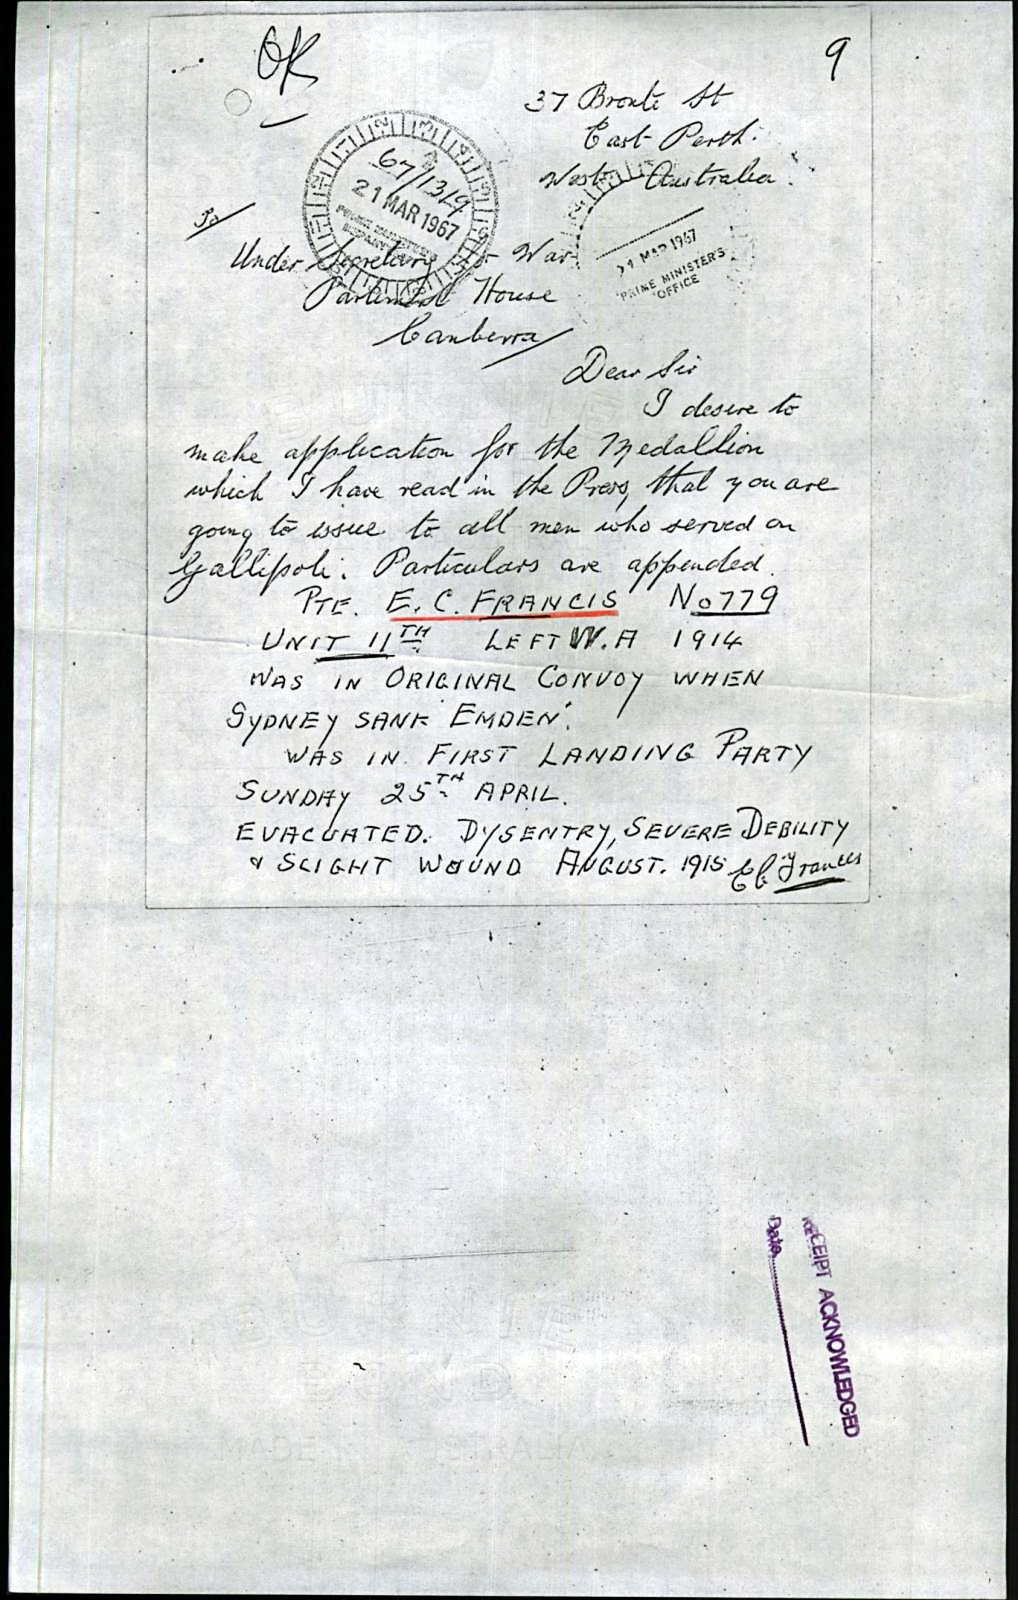 OK
9
37 Bronte St
East Perth.
West Australia.
67/1319
21 MAR 1967
21 MAR 1967
PRIME MINISTER'S
OFFICE
To
Under Secretary for War
Parliment House
Canberra
Dear Sir
I desire to
make application for the Medallion
which I have read in the Press, that you are
going to issue to all men who served on
Gallipoli. Particulars are appended.
PTE. E. C. FRANCIS No 779
UNIT 11TH LEFT W.A 1914
WAS IN ORIGINAL CONVOY WHEN
SYDNEY SANK 'EMDEN'.
WAS IN FIRST LANDING PARTY
SUNDAY 25TH APRIL.
EVACUATED. DYSENTRY, SEVERE DEBILITY
& SLIGHT WOUND AUGUST. 1915 E C Francis
RECEIPT ACKNOWLEDGED
Date